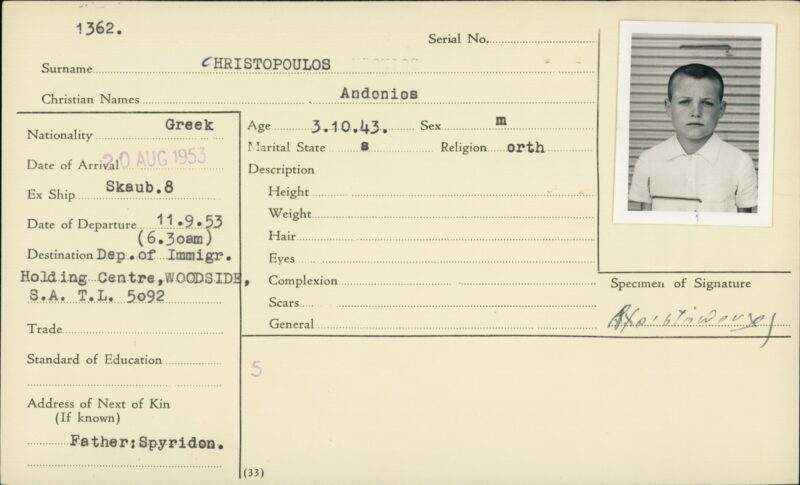 1362.
Serial No.
Surname CHRISTOPOULOS
Christian Names Andonios
Nationality Greek
Date of Arrival 20 AUG 1953
Ex Ship Skaub.8
Date of Departure 11.9.53
(6.3oam)
Destination Dep.of Immigr.
Holding Centre,WOODSIDE,
S.A. T.L. 5092
Trade
Standard of Education
Address of Next of Kin
(If known)
Father:Spyridon.
Age 3.10.43. Sex m
Marital State s Religion orth
Description
Height
Weight
Hair
Eyes
Complexion
Scars
General
5
(33)
Specimen of Signature